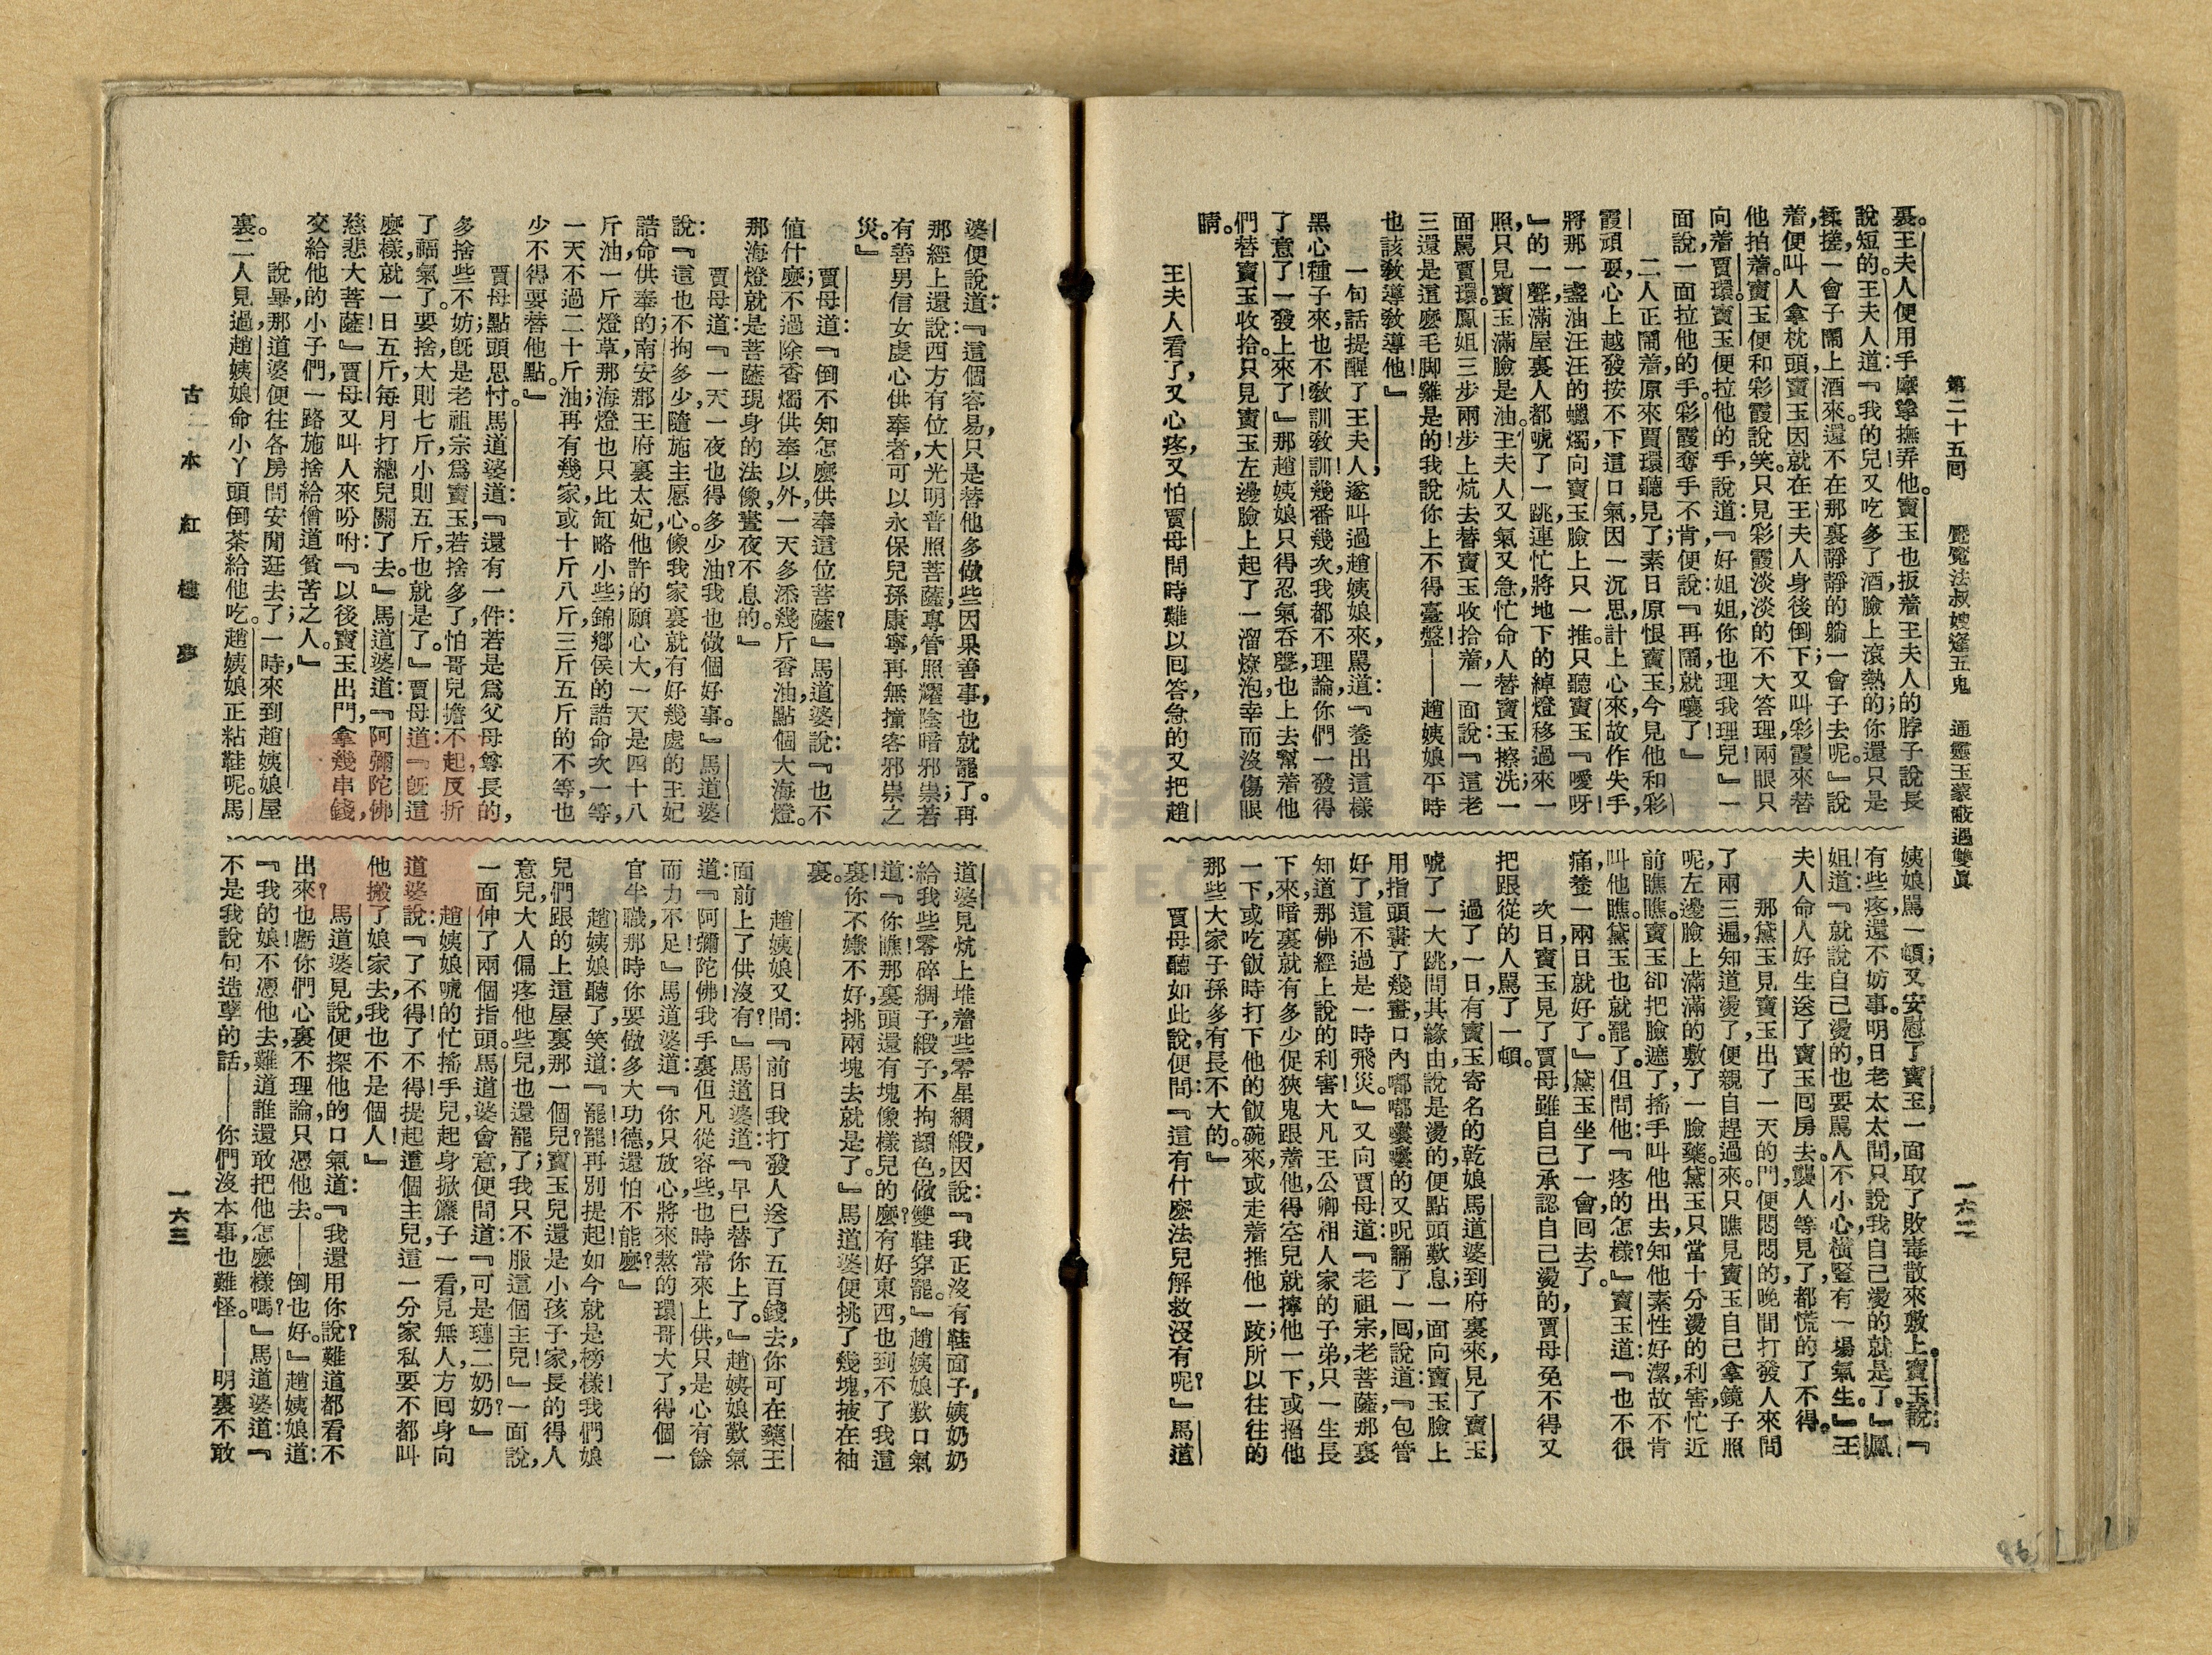 第二十五囘 魘魔法叔嫂逢五鬼 通靈玉蒙蔽遇雙眞 一六二
裏。王夫人便用手摩挲撫弄他。寶玉也扳着王夫人的脖子說長
說短的。王夫人道:『我的兒!又吃多了酒,臉上滾熱的;你還只是
揉搓,一會子鬧上酒來。還不在那裏靜靜的躺一會子去呢。』說
着,便叫人拿枕頭,寶玉因就在王夫人身後倒下;又叫彩霞來替
他拍着。寶玉便和彩霞說笑。只見彩霞淡淡的不大答理,兩眼只
向着賈環。寶玉便拉他的手,說道:『好姐姐,你也理我理兒!』一
面說,一面拉他的手。彩霞奪手不肯,便說:『再鬧,就嚷了!』
二人正鬧着,原來賈環聽見了;素日原恨寶玉,今見他和彩
霞頑耍,心上越發按不下這口氣。因一沉思,計上心來,故作失手,
將那一盞油汪汪的蠟燭,向寶玉臉上只一推。只聽寶玉『噯呀!
』的一聲,滿屋裏人都唬了一跳。連忙將地下的綽燈移過來一
照,只見寶玉滿臉是油。王夫人又氣又急,忙命人替寶玉擦洗;一
面罵賈環。鳳姐三步兩步上炕去替寶玉收拾着,一面說:『這老
三還是這麽毛脚雞是的!我說你上不得臺盤!——趙姨娘平時
也該教導教導他!』
一句話提醒了王夫人,遂叫過趙姨娘來,罵道:『養出這樣
黑心種子來,也不敎訓敎訓!幾番幾次我都不理論,你們一發得
了意了!一發上來了!』那趙姨娘只得忍氣吞聲,也上去幫着他
們替寶玉收拾。只見寶玉左邊臉上起了一溜燎泡,幸而沒傷眼
睛。
王夫人看了,又心疼,又怕賈母問時難以回答,急的又把趙
姨娘罵一頓;又安慰了寶玉,一面取了敗毒散來敷上。寶玉說:『
有些疼,還不妨事。明日老太太問,只說我自己燙的就是了。』鳳
姐道:『就說自己燙的,也要罵人不小心,橫豎有一場氣生。』王
夫人命人好生送了寶玉囘房去。襲人等見了,都慌的了不得。
那黛玉見寶玉出了一天的門,便悶悶的,晚間打發人來問
了兩三遍,知道燙了,便親自趕過來。只瞧見寶玉自己拿鏡子照
呢,左邊臉上滿滿的敷了一臉藥。黛玉只當十分燙的利害,忙近
前瞧瞧。寶玉卻把臉遮了,搖手叫他出去,知他素性好潔,故不肯
叫他瞧。黛玉也就罷了。但問他:『疼的怎樣?』寶玉道:『也不很
痛,養一兩日就好了。』黛玉坐了一會,囘去了。
次日,寶玉見了賈母,雖自己承認自己燙的,賈母免不得又
把跟從的人罵了一頓。
過了一日,有寶玉寄名的乾娘馬道婆到府裏來,見了寶玉,
唬了一大跳,問其緣由,說是燙的,便點頭歎息;一面向寶玉臉上
用指頭畫了幾畫,口內嘟嘟囔囔的又呪誦了一囘,說道:『包管
好了,這不過是一時飛災。』又向賈母道:『老祖宗,老菩薩,那裏
知道那佛經上說的利害!大凡王公卿相人家的子弟,只一生長
下來,暗裏就有多少促狹鬼跟着他,得空兒就擰他一下,或掐他
一下,或吃飯時打下他的飯碗來,或走着推他一跤;所以往往的
那些大家子孫多有長不大的。』
賈母聽如此說,便問:『這有什麽法兒解救沒有呢?』馬道
婆便說道:『這個容易,只是替他多做些因果善事,也就罷了。再
那經上還說:西方有位大光明普照菩薩,專管照耀陰暗邪祟;若
有善男信女虔心供奉者,可以永保兒孫康寧,再無撞客邪祟之
災。』
賈母道:『倒不知怎麽供奉這位菩薩?』馬道婆說:『也不
值什麽;不過除香燭供奉以外,一天多添幾斤香油,點個大海燈。
那海燈就是菩薩現身的法像,晝夜不息的。』
賈母道:『一天一夜也得多少油?我也做個好事。』馬道婆
說:『這也不拘多少,隨施主愿心。像我家裏就有好幾處的王妃
誥命供奉的;南安郡王府裏太妃,他許的願心大,一天是四十八
斤油,一斤燈草,那海燈也只比缸略小些;錦鄉侯的誥命次一等,
一天不過二十斤油;再有幾家,或十斤,八斤,三斤,五斤的不等,也
少不得要替他點。』
賈母點頭思忖。馬道婆道:『還有一件:若是爲父母尊長的,
多捨些不妨;旣是老祖宗爲寶玉,若捨多了,怕哥兒擔不起,反折
了福氣了。要捨,大則七斤,小則五斤,也就是了。』賈母道:『旣這
麽樣,就一日五斤,每月打總兒關了去。』馬道婆道:『阿彌陀佛
慈悲大菩薩!』賈母又叫人來吩咐:『以後寶玉出門,拿幾串錢,
交給他的小子們,一路施捨給僧道貧苦之人。』
說畢,那道婆便往各房問安閒逛去了;一時,來到趙姨娘屋
裏。二人見過,趙姨娘命小丫頭倒茶給他吃。趙姨娘正粘鞋呢。馬
道婆見炕上堆着些零星綢緞,因說:『我正沒有鞋面子,姨奶奶
給我些零碎綢子緞子,不拘顏色,做雙鞋穿罷。』趙姨娘歎口氣
道:『你瞧!那裏頭還有塊像樣兒的麽?有好東西,也到不了我這
裏!你不嫌不好,挑兩塊去就是了。』馬道婆便挑了幾塊,掖在袖
裏。
趙姨娘又問:『前日我打發人送了五百錢去,你可在藥王
面前上了供沒有?』馬道婆道:『早已替你上了。』趙姨娘歎氣
道:『阿彌陀佛!我手裏但凡從容些,也時常來上供,只是心有餘
而力不足。』馬道婆道:『你只放心,將來熬的環哥大了,得個一
官半職,那時你要做多大功德,還怕不能麽?』
趙姨娘聽了,笑道:『罷!罷!再別提起!如今就是榜樣!我們娘
兒們跟的上這屋裏那一個兒?寶玉兒還是小孩子家,長的得人
意兒,大人偏疼他些兒,也還罷了;我只不服這個主兒!』一面說,
一面伸了兩個指頭。馬道婆會意,便問道:『可是璉二奶奶?』
趙姨娘唬的忙搖手兒,起身掀簾子一看,見無人,方囘身向
道婆說:『了不得!了不得!提起這個主兒,這一分家私要不都叫
他搬了娘家去,我也不是個人!』
馬道婆見說,便探他的口氣道:『我還用你說?難道都看不
出來?也虧你們心裏不理論,只憑他去——倒也好。』趙姨娘道:
『我的娘!不憑他去,難道誰還敢把他怎麽樣嗎?』馬道婆道:『
不是我說句造孽的話——你們沒本事,也難怪。——明裏不敢
古本紅樓夢 一六三